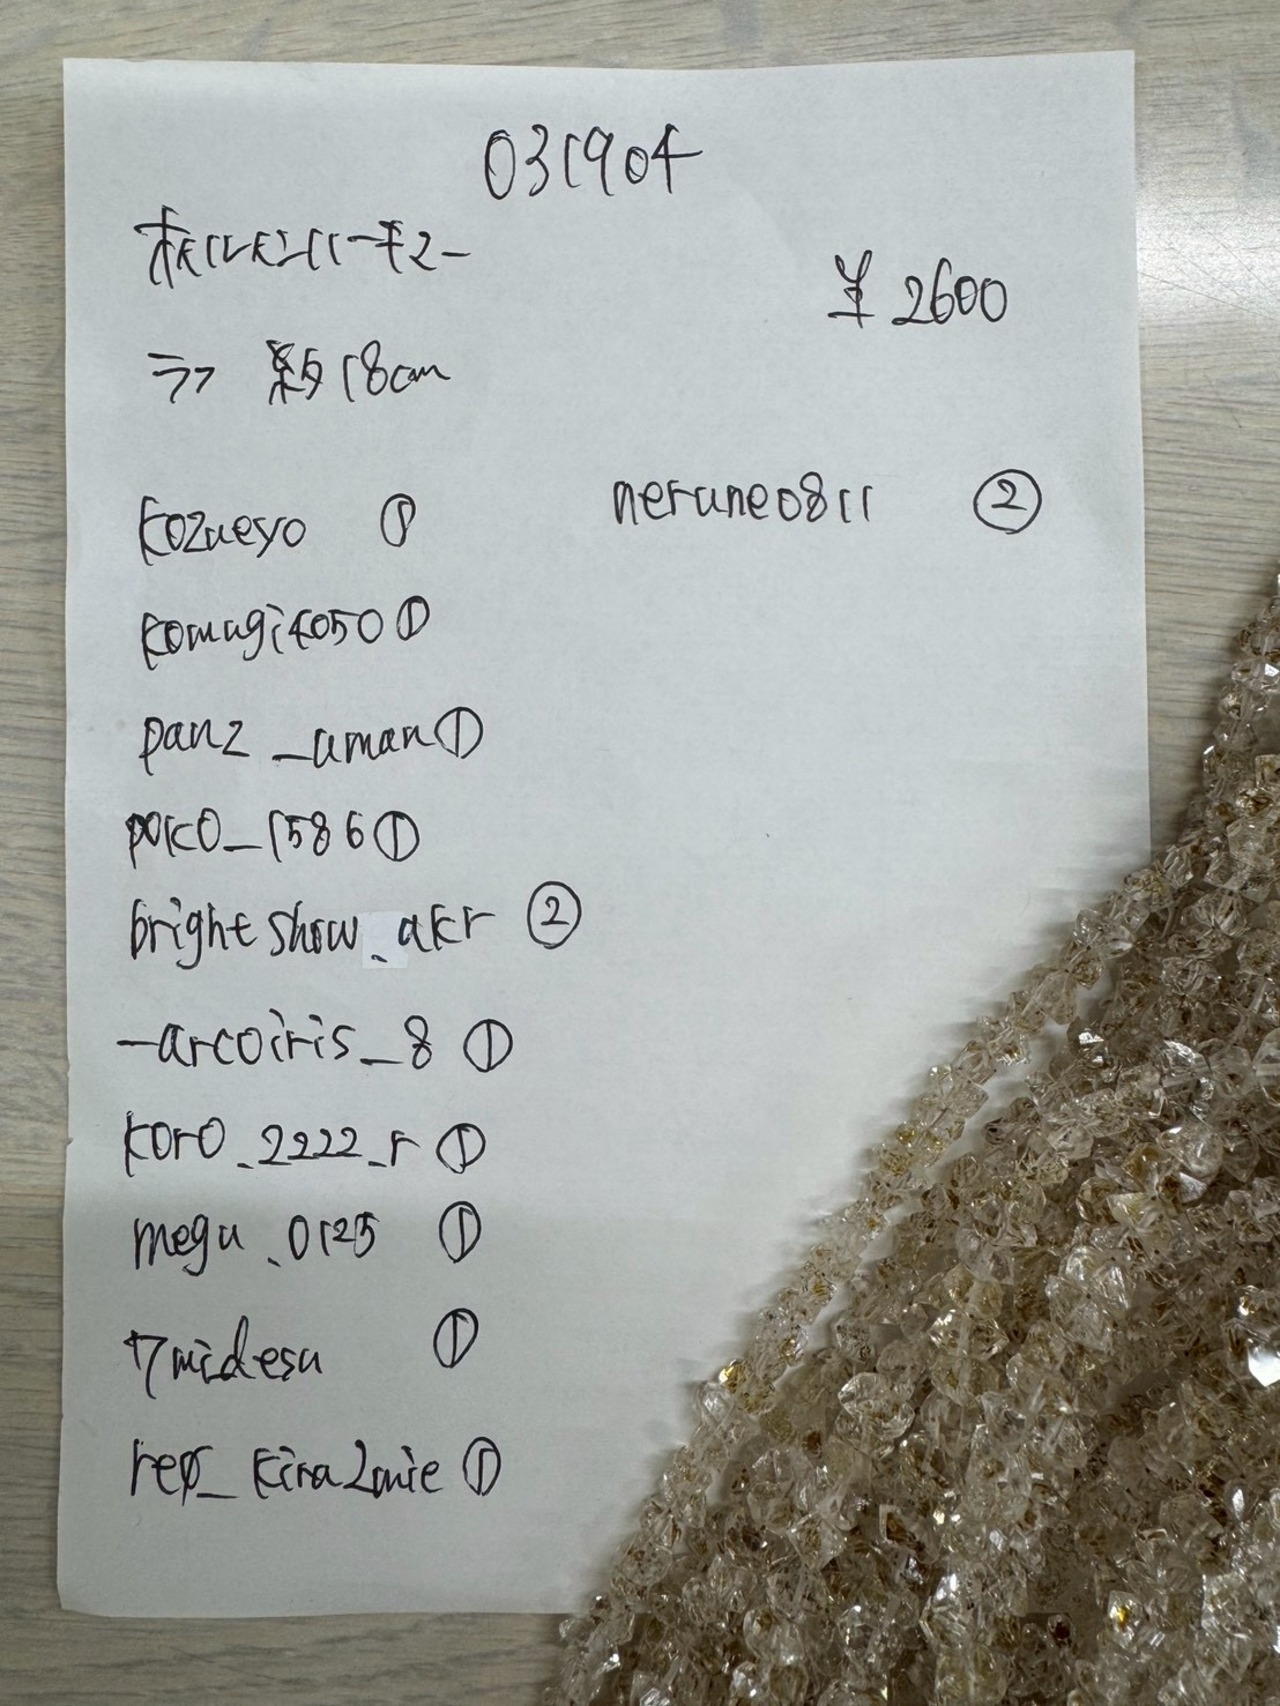 031904
ハーキマー
¥2600
ラフ 約18cm
kozueyo ①
komugi4050①
panz_aman①
poko_1586①
brightshow_akr ②
_arcoiris_8 ①
koro_2222_r ①
megu_0125 ①
7midesu ①
rep_kira2mie ①
nerune0811 ②